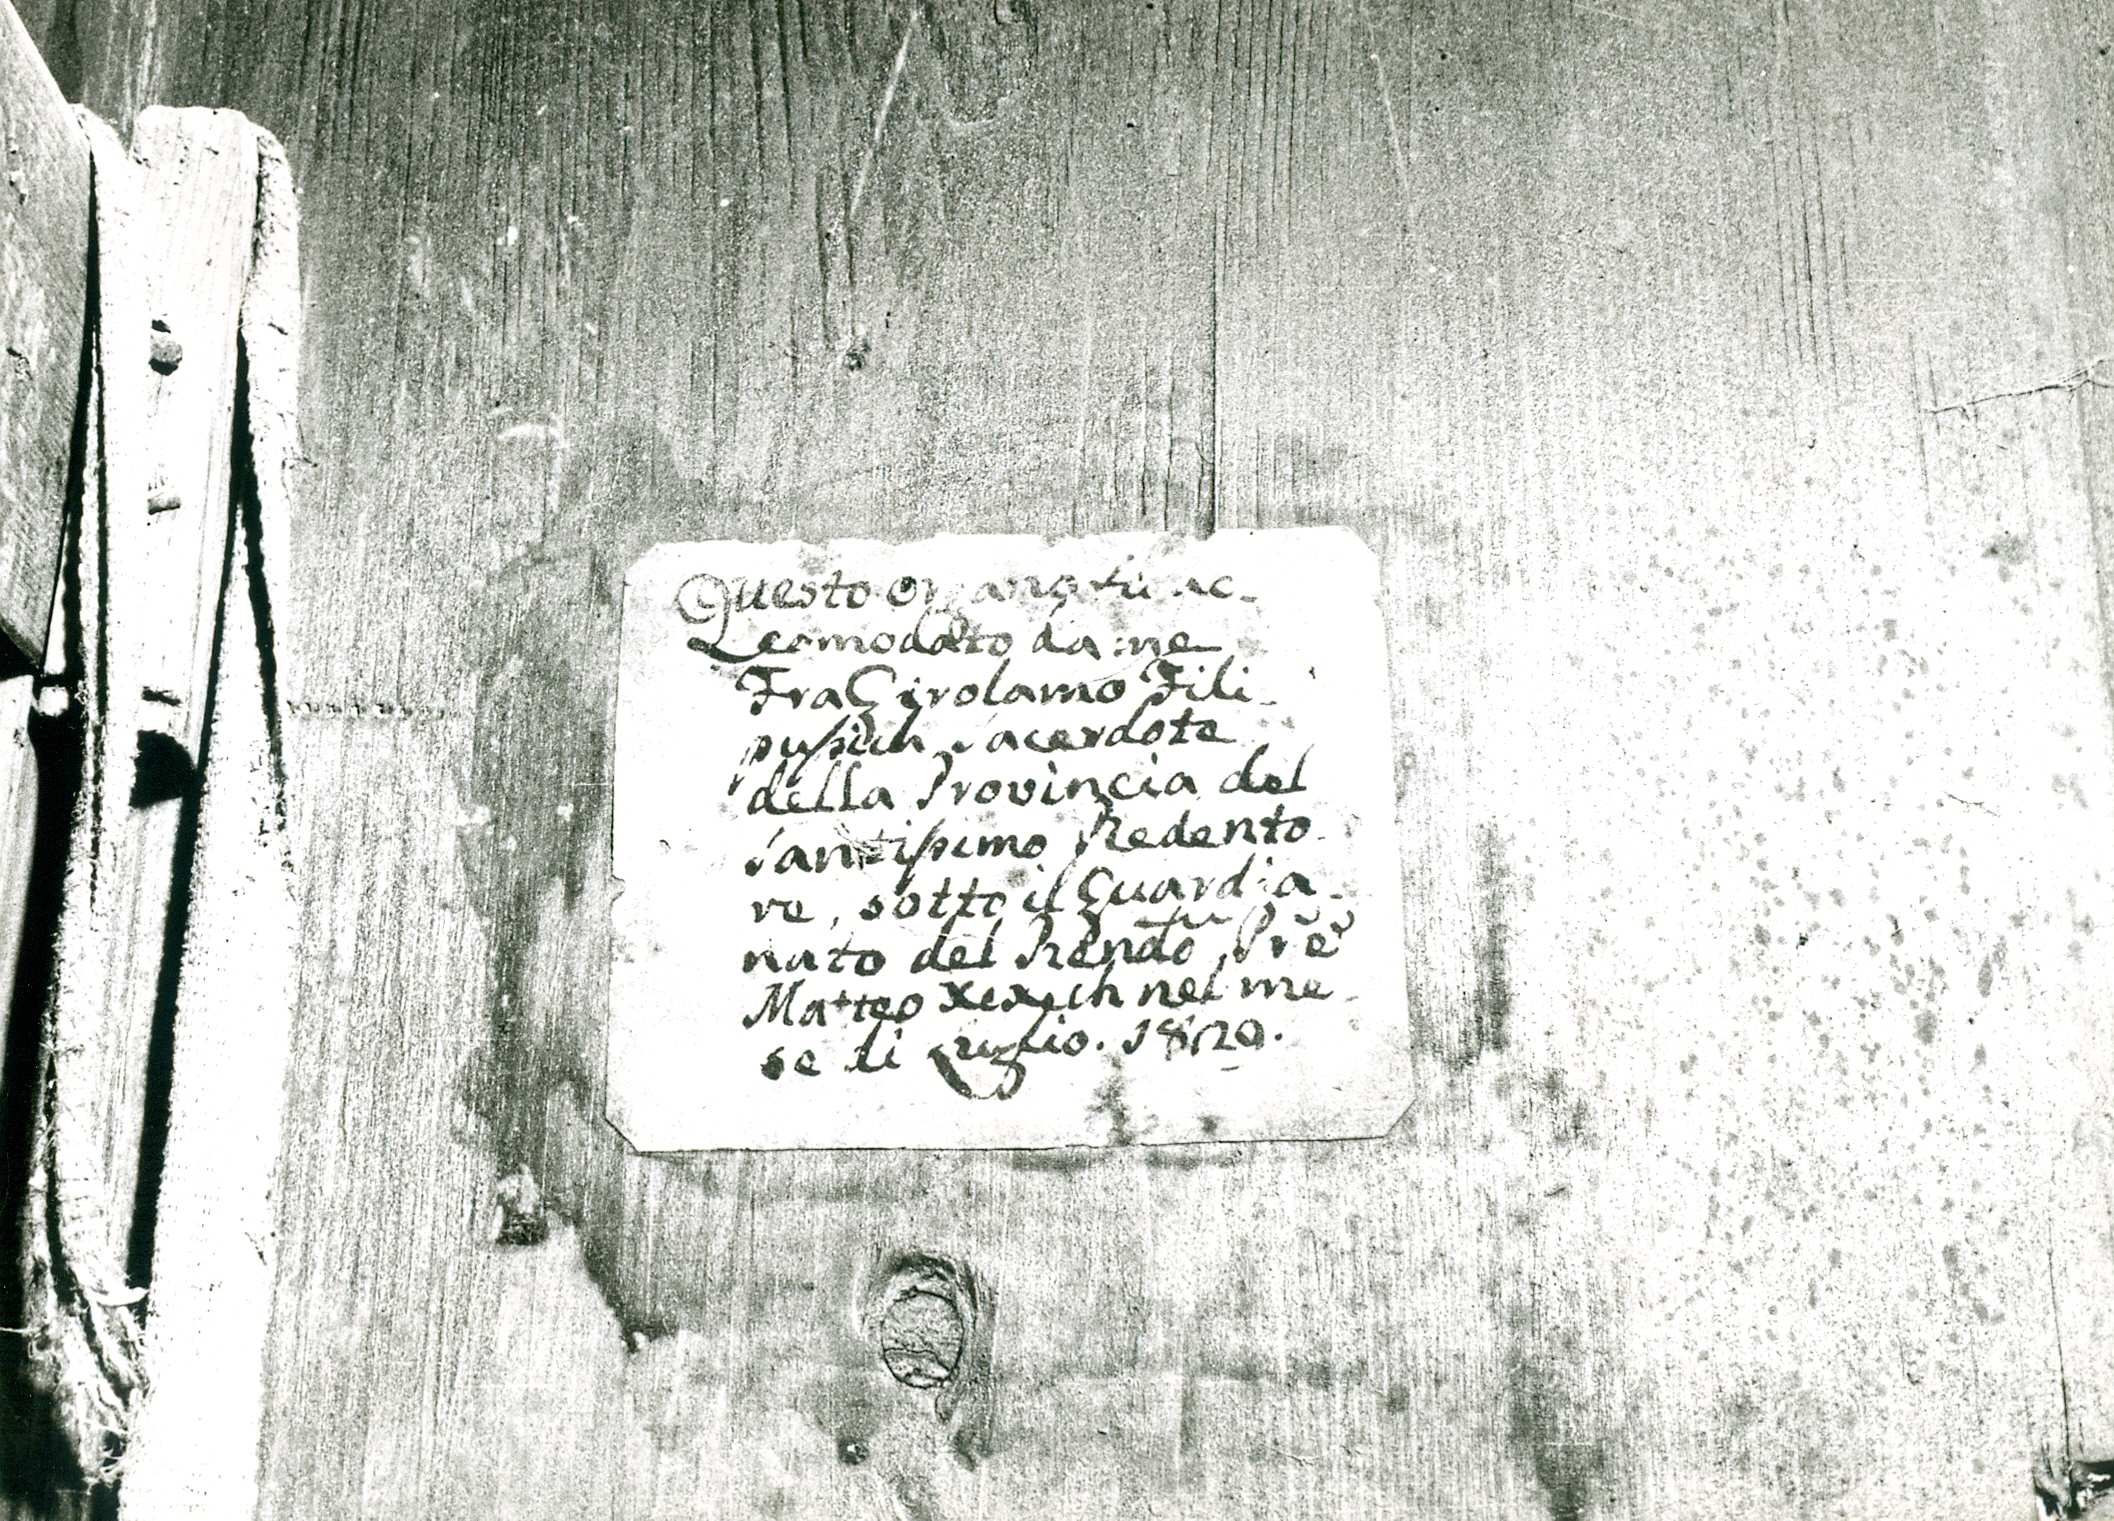 Questo organo fu ac-
comodato da me
Fra Girolamo Fili-
pussich Sacerdote
della Provincia del
Santissimo Redento-
re, sotto il Guardia-
nato del Rendo Pre
Matteo Xixich nel me-
se di Luglio. 1820.